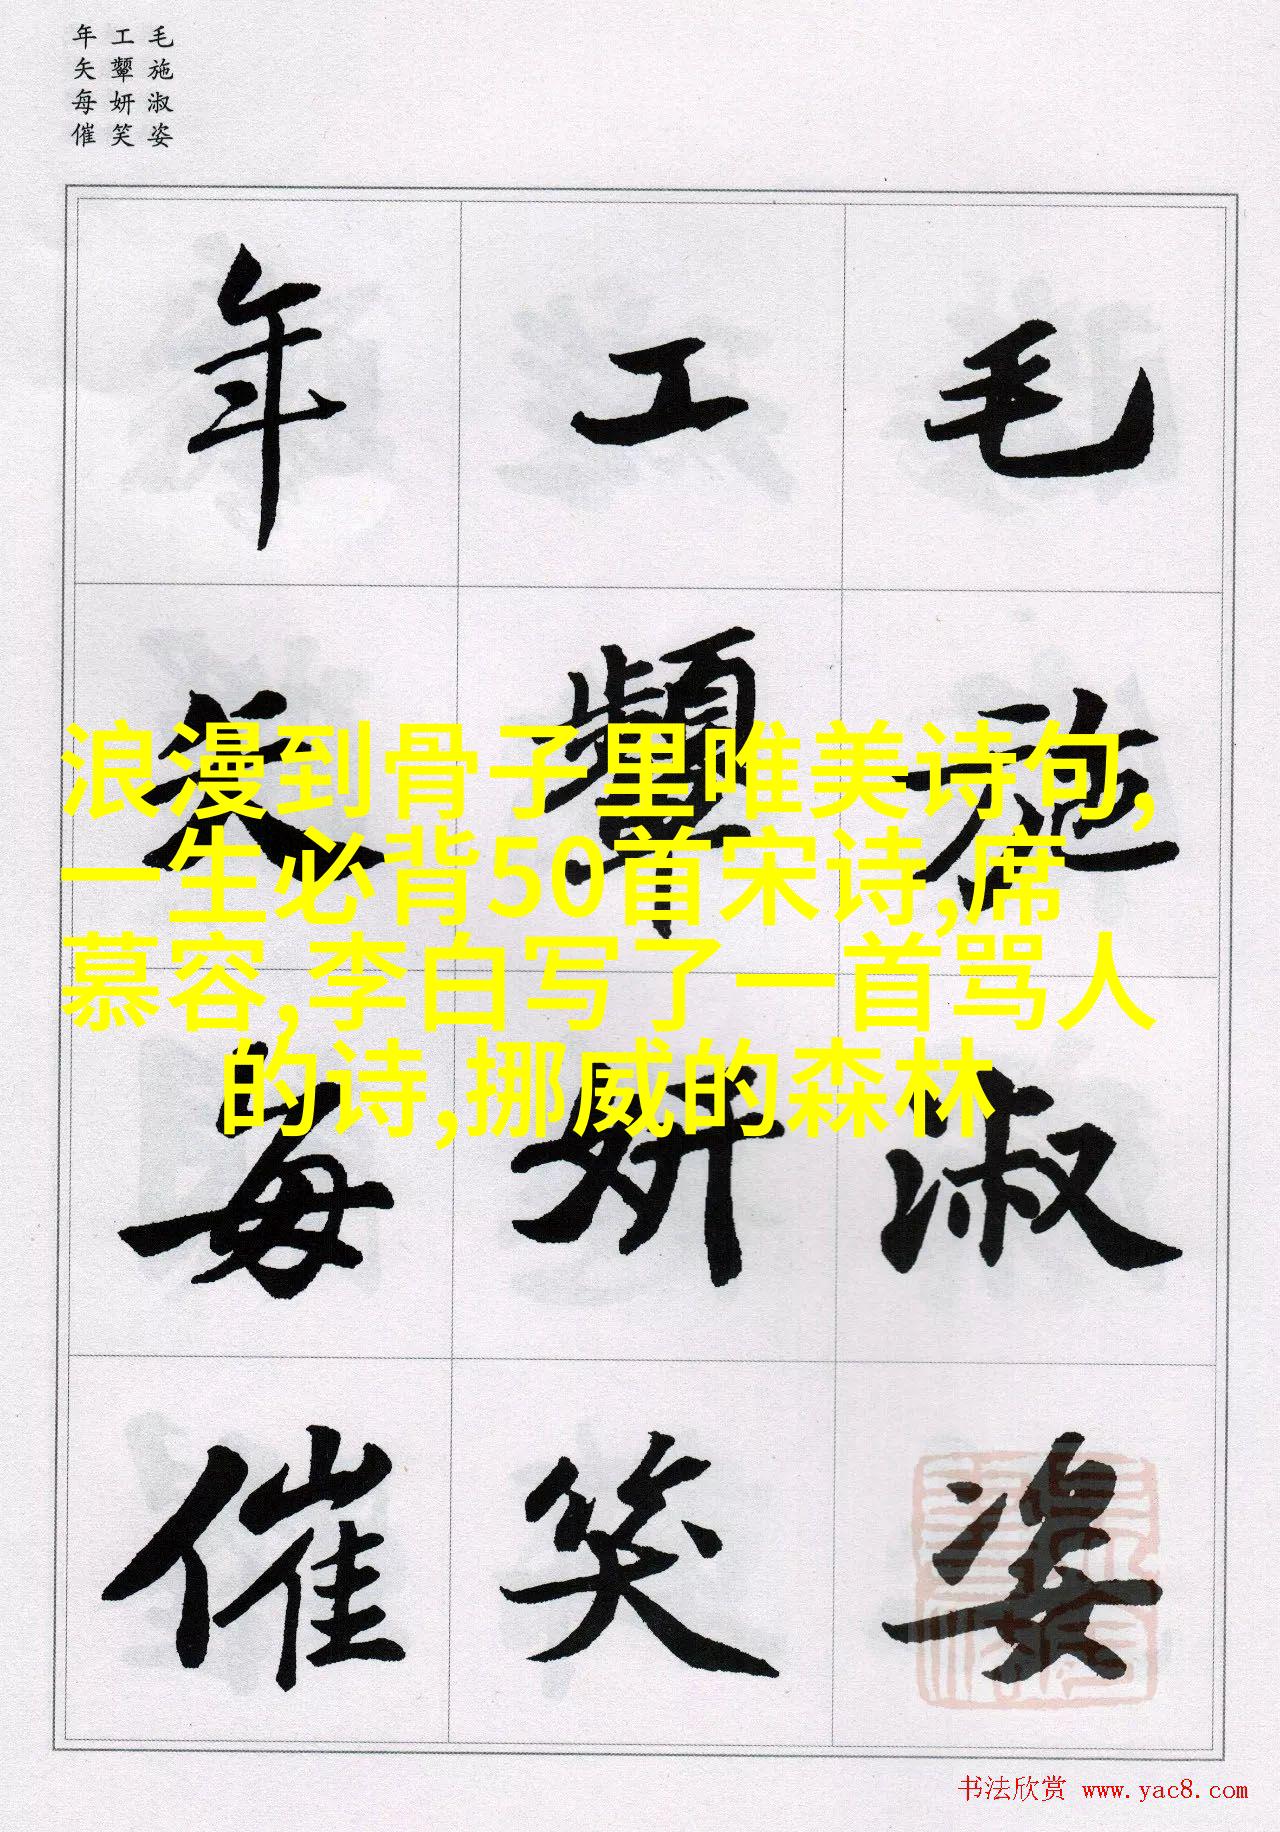 毛施淑姿
工颦妍笑
年矢每催
毛施淑姿
工颦妍笑
年矢每催
浪漫到骨子里唯美诗句,
一生必背50首宋诗,席
慕容,李白写了一首骂人
的诗,挪威的森林
书法欣赏 www.yac8.com